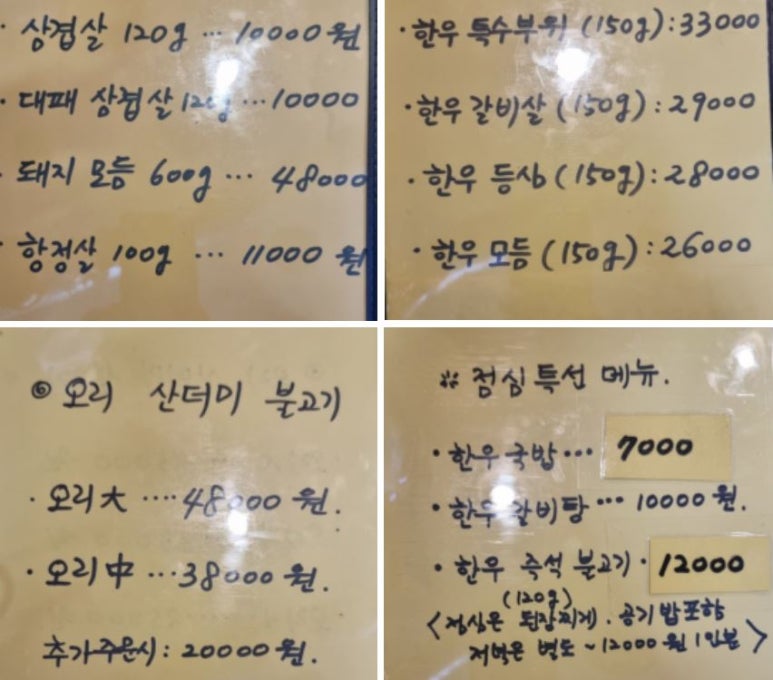 · 삼겹살 120g ··· 10000원
· 대패 삼겹살 120g ··· 10000
· 돼지 모듬 600g ··· 48000
· 항정살 100g ··· 11000 원
· 한우 특수부위 (150g) : 33000
· 한우 갈비살 (150g) : 29000
· 한우 등심 (150g) : 28000
· 한우 모듬 (150g) : 26000
◎ 오리 산더미 불고기
· 오리大 ···· 48000 원.
· 오리中 ··· 38000 원.
추가주문시 : 20000원.
※ 점심 특선 메뉴.
· 한우 국밥 ··· 7000
· 한우 갈비탕 ··· 10000원.
· 한우 즉석 불고기 · 12000
(120g)
< 점심은 된장찌게 . 공기밥포함
저녁은 별도 ~ 12000원 1인분 >